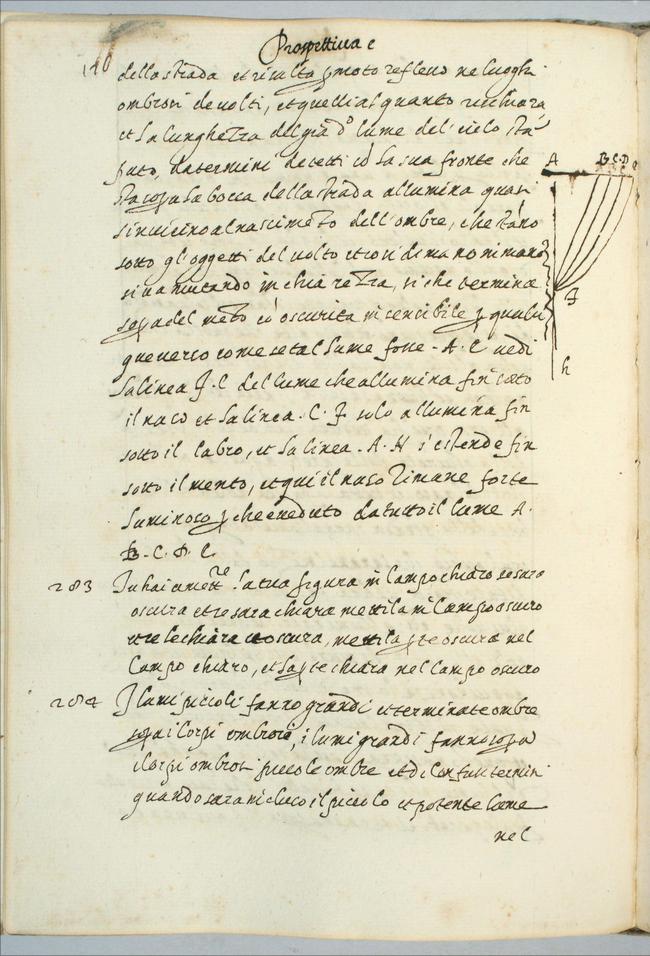 140
Prospettiua e
della strada et risulta p moto reflexo ne luoghi
ombrosi de uolti, et quelli alquanto rischiara
et la lunghezza del già d.o lume del cielo sta
puto, da termini de tetti cō la sua fronte che
sta sopra la bocca della strada allumina quasi
sin uicino al nascimēto dell'ombre, che stāno
sotto gl'oggetti del uolto et così di mano in mano
si ua mutando in chiarezza, si che termina
sopra del mēto cō oscurità insencibile p qualū
que uerso come se tal lume fosse . A . E uedi
la linea F . E del lume che allumina fin sotto
il naso et la linea . C . F solo allumina fin
sotto il labro, et la linea . A . H s'estende fin
sotto il mento, et qui il naso rimane forte
luminoso p che è ueduto da tutto il lume A .
B . C . D . E .
A B C D e
f
h
283 Tu hai à mettere la tua figura in campo chiaro se sarà
oscura et se sarà chiara mettila in campo oscuro
et se è chiara et oscura, metti la pte oscura nel
campo chiaro, et la pte chiara nel campo oscuro
284 I lumi piccoli fanno grandi et terminate ombre
sopra i corpi ombrosi, i lumi grandi fanno sopra
i corpi ombrosi piccole ombre et di confusi termini
quando sarà incluso il piccolo et potente lume
nel